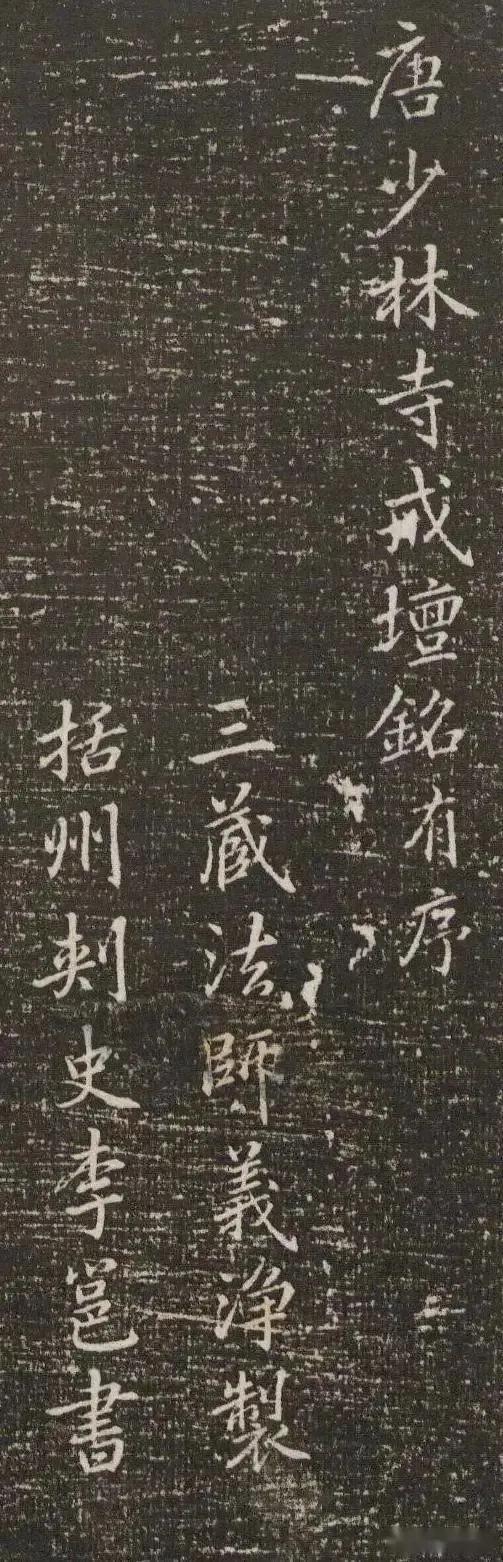 唐少林寺戒壇銘有序
三藏法師義淨製
括州刺史李邕書